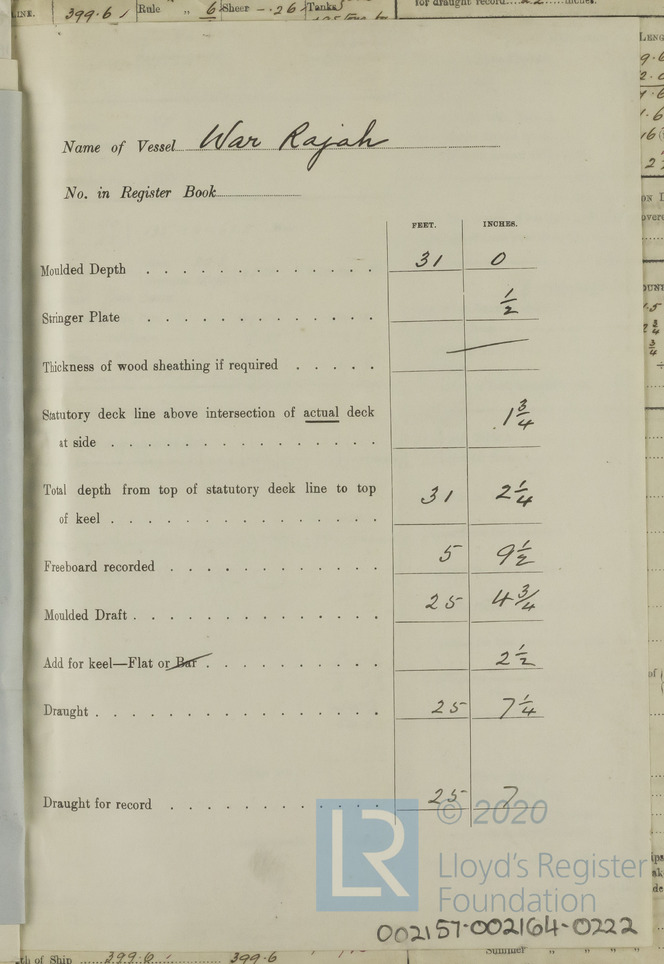 LINE. 399.6 Rule „ 6 Sheer –.26 Tanks for draught record....22....inches.
Name of Vessel War Rajah
No. in Register Book
FEET. INCHES.
Moulded Depth . . . . . . . . . . . . . 31 0
Stringer Plate . . . . . . . . . . . . . ½
Thickness of wood sheathing if required . . . . . —
Statutory deck line above intersection of actual deck
at side . . . . . . . . . . . . . . . 1¾
Total depth from top of statutory deck line to top
of keel . . . . . . . . . . . . . . . 31 2¼
Freeboard recorded . . . . . . . . . . . . 5 9½
Moulded Draft . . . . . . . . . . . . . . 25 4¾
Add for keel—Flat or Bar . . . . . . . . . . 2½
Draught . . . . . . . . . . . . . . . . 25 7¼
Draught for record . . . . . . . . . . . . 25 7
© 2020
LR Lloyd's Register
Foundation
002157-002164-0222
th of Ship 399.6 399.6 Summer „ „ „ „